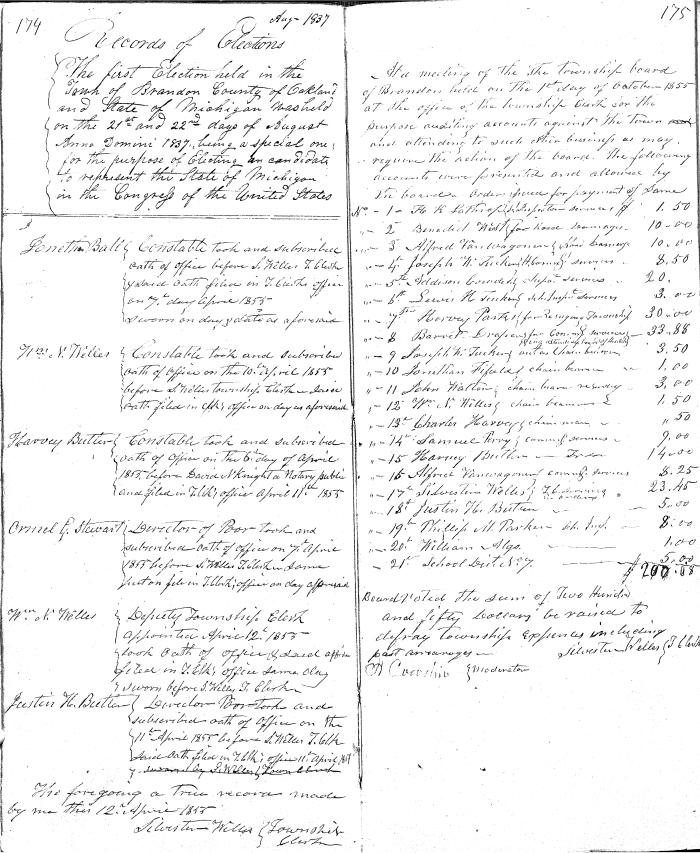 174
Aug 1837
Records of Elections
The first Election held in the
Town of Brandon County of Oakland
and State of Michigan was held
on the 21st and 22nd days of August
Anno Domini 1837, being a special one
for the purpose of Electing an candidate
to represent the State of Michigan
in the Congress of the United States
Jonathan Ball Constable took and subscribed
oath of office before S. Willes T. Clerk
& said oath filed in T. Clerks office
on 7th day April 1855
sworn on day & date as aforesaid
Wm N. Willes Constable took and subscribed
oath of office on the 10th April 1855
before S. Willes township Clerk & said
oath filed in office on day as aforesaid
Harvey Butler Constable took and subscribed
oath of office on the 6th day of April
1855 before David N Knight a Notary public
and filed in T. Clk office April 11th 1855
Ormel G. Stewart Director of Poor took and
subscribed oath of office on 7th April
1855 before S. Willes T. Clerk & same
put on file in T. Clerk office on day aforesaid
Wm N. Willes Deputy Township Clerk
appointed April 12th 1855
took oath of office & said
filed in T. Clk office same day
sworn before S. Willes T. Clerk
Justin H. Butler Director Poor took and
subscribed oath of office on the
11th April 1855 before S. Willes T. Clk
said oath filed in T. Clk office 11th April
sworn by S. Willes Town Clerk
The foregoing a true record made
by me this 12th April 1855
Silvester Willes Township
Clerk
175
At a meeting of the the township board
of Brandon held on the 1st day of October 1855
at the office of the township Clerk for the
purpose auditing accounts against the town
and attending to such other business as may
require the action of the board. The following
accounts were presented and allowed by
the board & order issued for payment of same
No - 1 - H. K. Lathrop services $ 1.50
" 2 Benedict West for horse 10.00
" 3 Alfred Vanwagoner 10.00
" 4 Joseph W. Tucker services 8.50
" 5th Addison services 20.
" 6th Lewis H Tucker services 3.00
" 7th Harvey Parks for Township 30.00
" 8 Barret Draper for services 33.88
" 9 Joseph W. Tucker as Chain 3.50
" 10 Jonathan chain 1.00
" 11 John chain 3.00
" 12 Wm N. Willes chain 1.50
" 13th Charles Harvey chain man " 50
" 14th Samuel Perry services 9.00
" 15 Harvey Butler 14.00
" 16 Alfred Vanwagoner services 8.25
" 17th Silvester Willes T. C. services 23.45
" 18th Justin H. Butler 5.00
" 19th Phillip M. Parker 8.00
" 20th William Algo 1.00
" 21st School Dist. No 7 5.00
$ 200.08
Board Voted the sum of Two Hundred
and fifty Dollars be raised to
defray township expenses including
past arrearages
Silvester Willes T. Clerk
Moderator